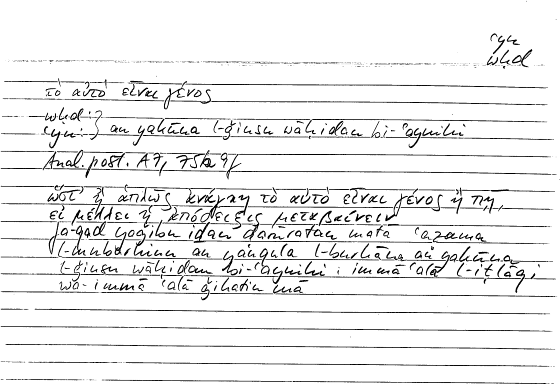 ʿyn
wḥd
τὸ αὐτὸ εἶναι γένος
wḥd:?
ʿyn:} an yakūna l-ǧinsu wāḥidan bi-ʿaynihi
Anal. post. A7, 75b9f
ὥστ' ἢ ἁπλῶς ἀνάγκη τὸ αὐτὸ εἶναι γένος ἢ πῇ,
εἰ μέλλει ἡ ἀπόδειξις μεταβαίνειν
fa-qad yaǧibu iḏan ḍarūratan matā ʿazama
l-mubarhinu an yanqula l-burhāna an yakūna
l-ǧinsu wāḥidan bi-ʿaynihi : immā ʿalā l-iṭlāqi
wa-immā ʿalā ǧihatin mā